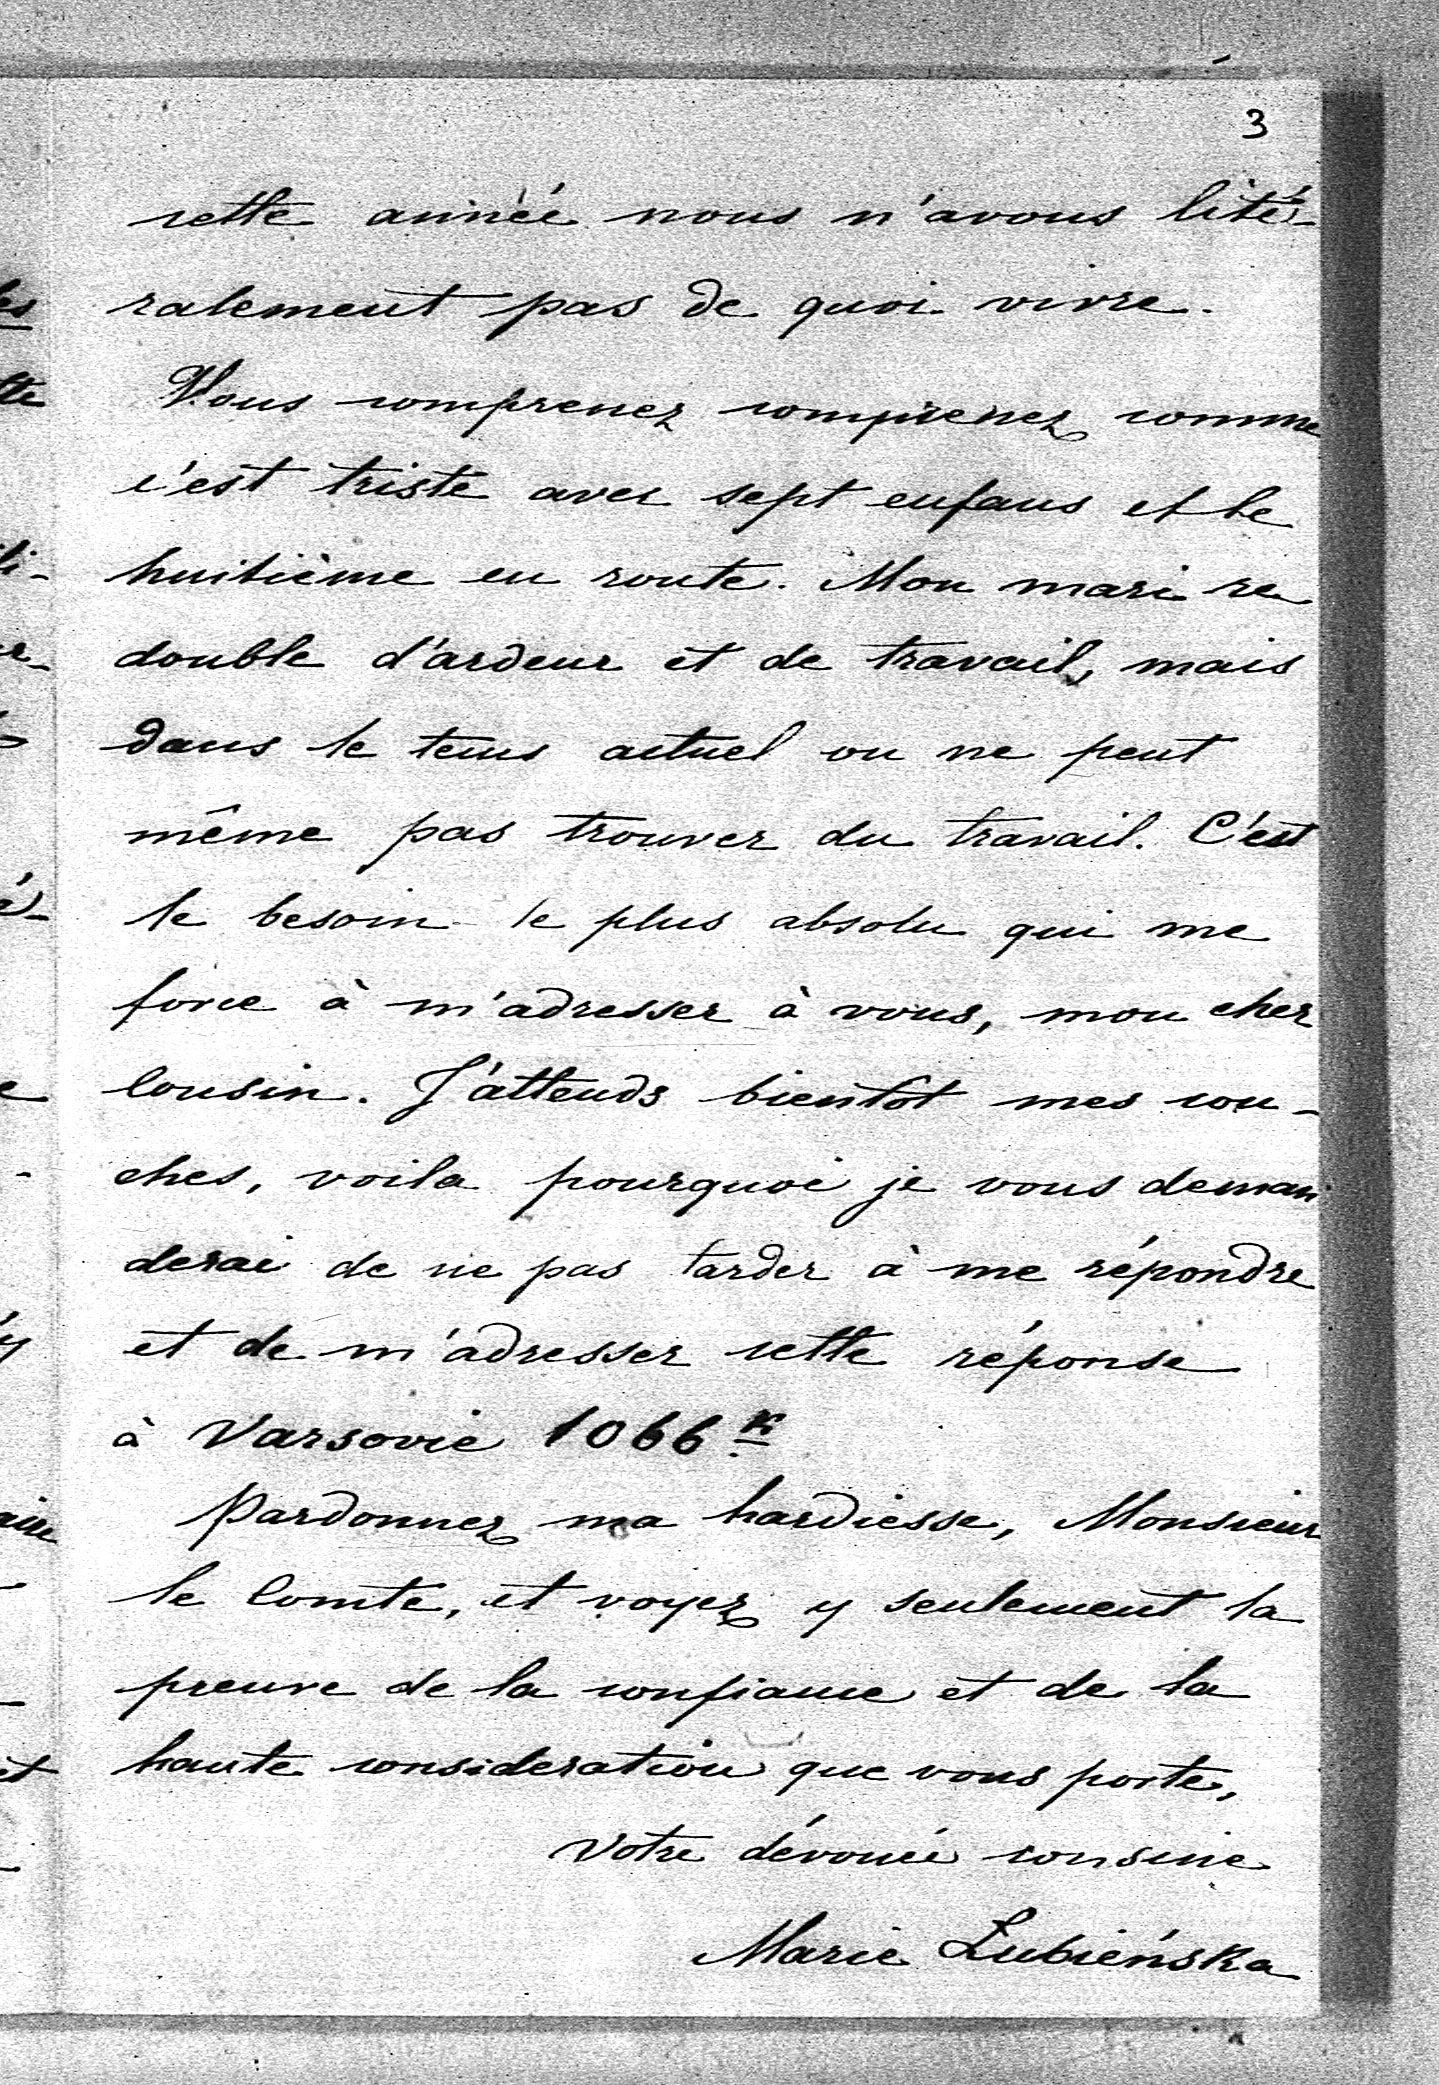 3
cette année nous n'avons lité-
ralement pas de quoi vivre.
Vous comprenez comprenez comme
c'est triste avec sept enfans et le
huitième en route. Mon mari re
double d'ardeur et de travail, mais
dans le tems actuel on ne peut
même pas trouver du travail. C'est
le besoin le plus absolu qui me
force à m'adresser à vous, mon cher
Cousin. J'attends bientôt mes cou-
ches, voila pourquoi je vous deman
derai de ne pas tarder à me répondre
et de m'adresser cette réponse
à Varsovie 1066 K
Pardonnez ma hardiesse, Monsieur
le Comte, et voyez y seulement la
preuve de la confiance et de la
haute consideration que vous porte,
votre dévouée cousine
Marie Łubieńska